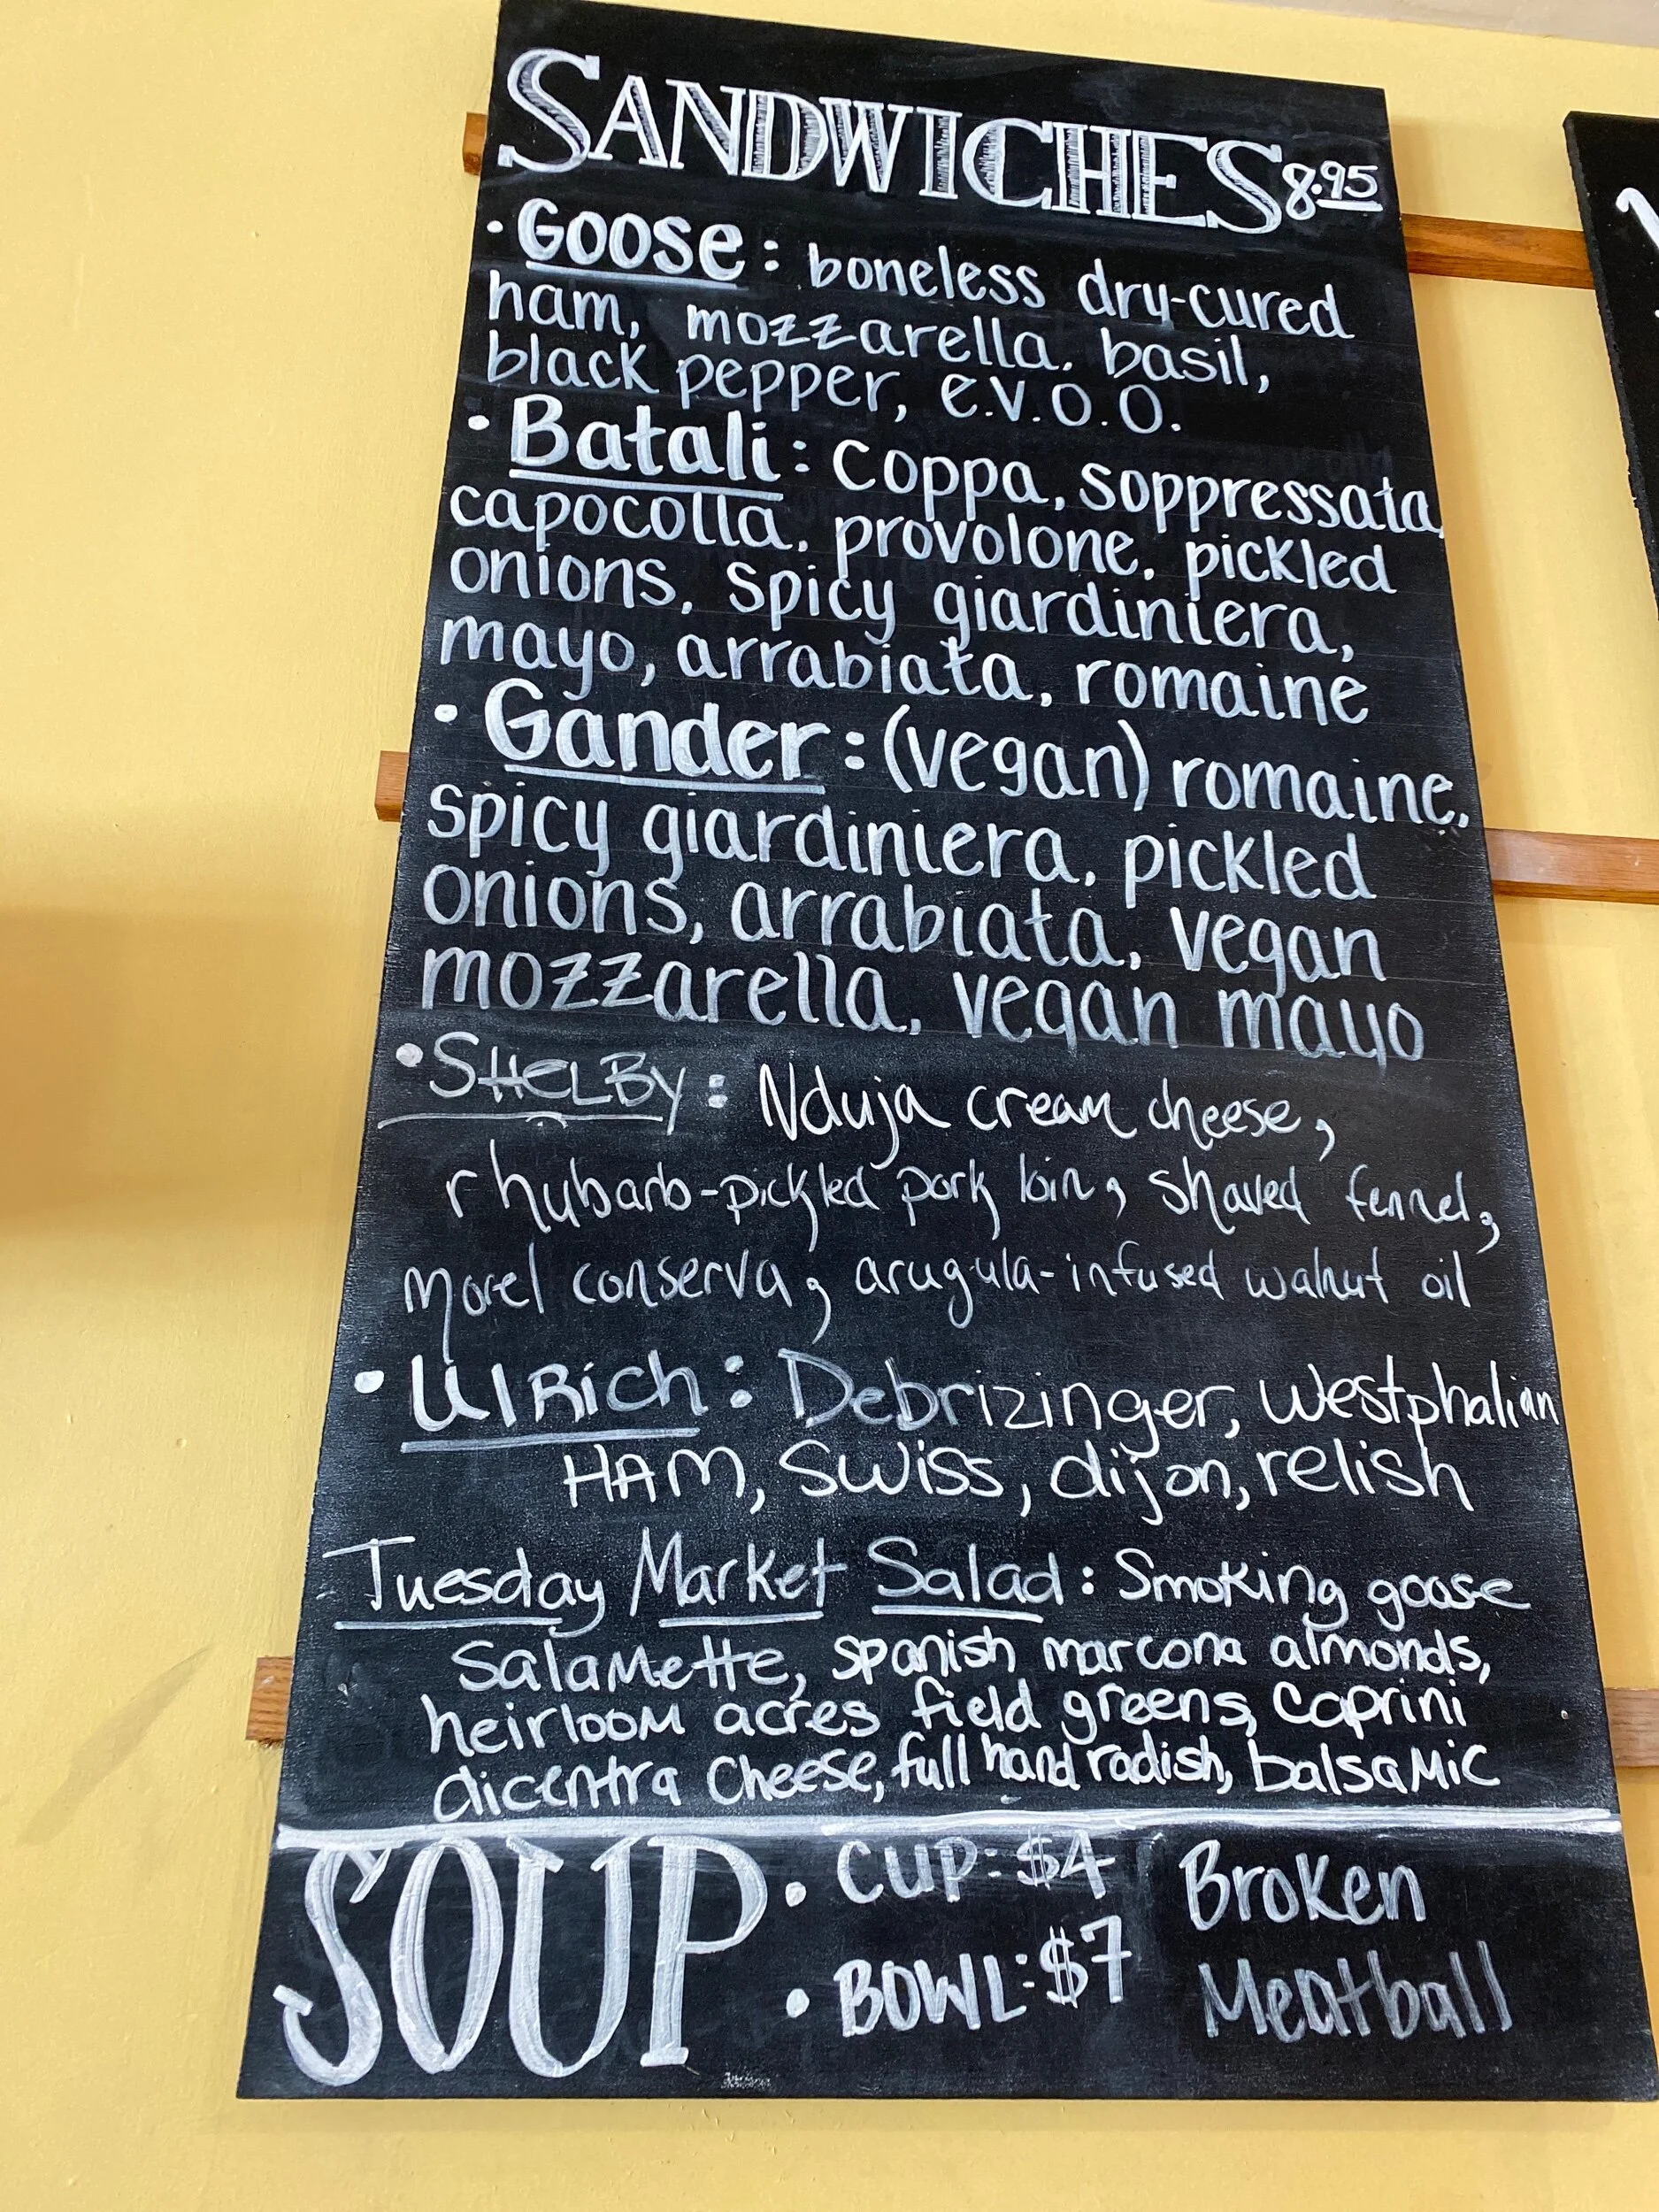 SANDWICHES 8.95
• GOOSE: boneless dry-cured
ham, mozzarella, basil,
black pepper, e.v.o.o.
• Batali: coppa, soppressata,
capocolla, provolone, pickled
onions, spicy giardiniera,
mayo, arrabiata, romaine
• Gander: (vegan) romaine,
spicy giardiniera, pickled
onions, arrabiata, vegan
mozzarella, vegan mayo
• SHELBY: Nduja cream cheese,
rhubarb-pickled pork loin, shaved fennel,
morel conserva, arugula-infused walnut oil
• UlRich: Debrizinger, westphalian
HAM, SWiss, dijon, relish
Tuesday Market Salad: Smoking goose
Salamette, spanish marcona almonds,
heirloom acres field greens, caprini
dicentra cheese, full hand radish, balsamic
SOUP • CUP: $4 Broken
• BOWL: $7 Meatball